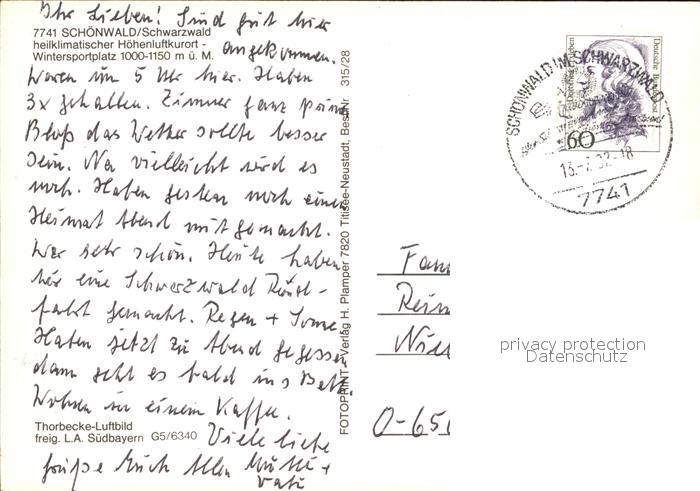 Ihr Lieben! Sind gut hier
7741 SCHÖNWALD/Schwarzwald
heilklimatischer Höhenluftkurort -
Wintersportplatz 1000-1150 m ü. M.
angekommen.
Waren um 5 Uhr hier. Haben
3x gehalten. Zimmer ganz prima
Bloß das Wetter sollte besser
sein. Na vielleicht wird es
noch. Haben gestern noch einen
Heimat Abend mitgemacht.
War sehr schön. Heute haben
wir eine Schwarzwald Rund-
fahrt gemacht. Regen + Sonne
Haben jetzt zu Abend gegessen
dann geht es bald ins Bett.
Wohnen in einem Kaffee.
Thorbecke-Luftbild
freig. L.A. Südbayern G5/6340
Viele liebe
Grüße Euch Allen Mutti +
Vati
FOTOPRINT - Verlag H. Plamper 7820 Titisee-Neustadt, Best.-Nr. 315/28
SCHÖNWALD IM SCHWARZWALD
7741
Deutsche Bundespost
60
Fam
Rein
O-650
privacy protection
Datenschutz